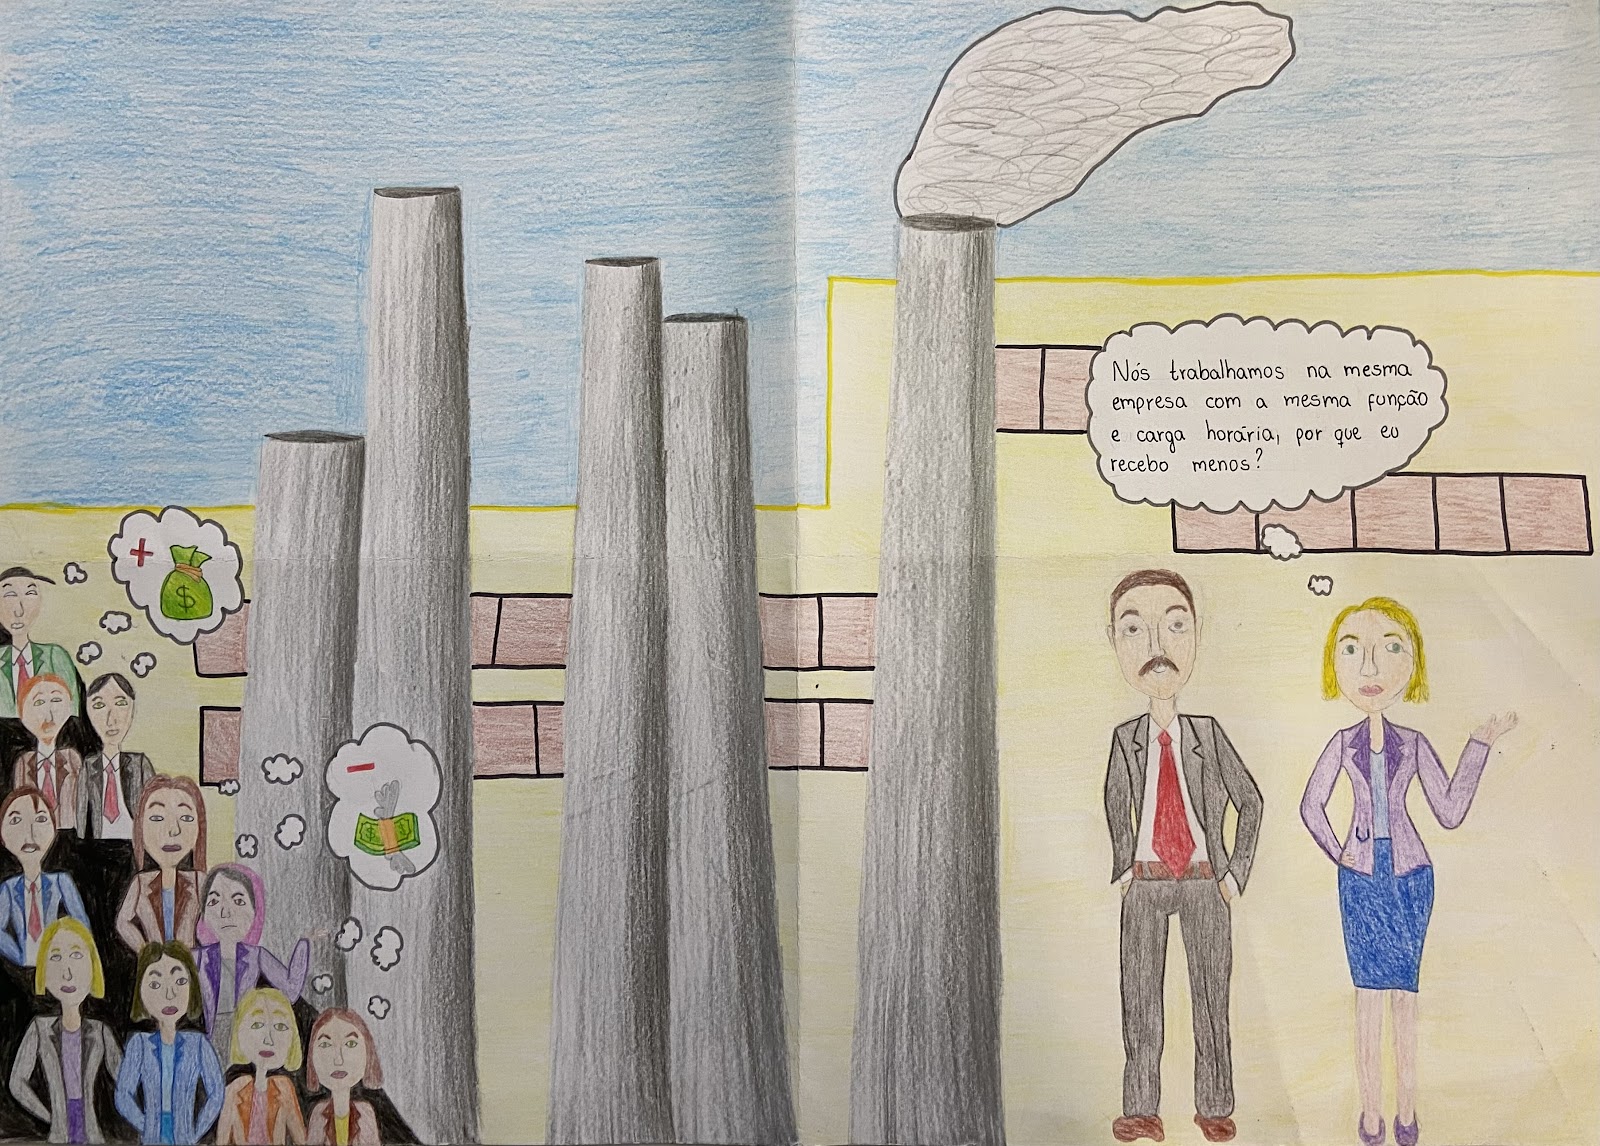 +
$
-
Nós trabalhamos na mesma
empresa com a mesma função
e carga horária, por que eu
recebo menos?